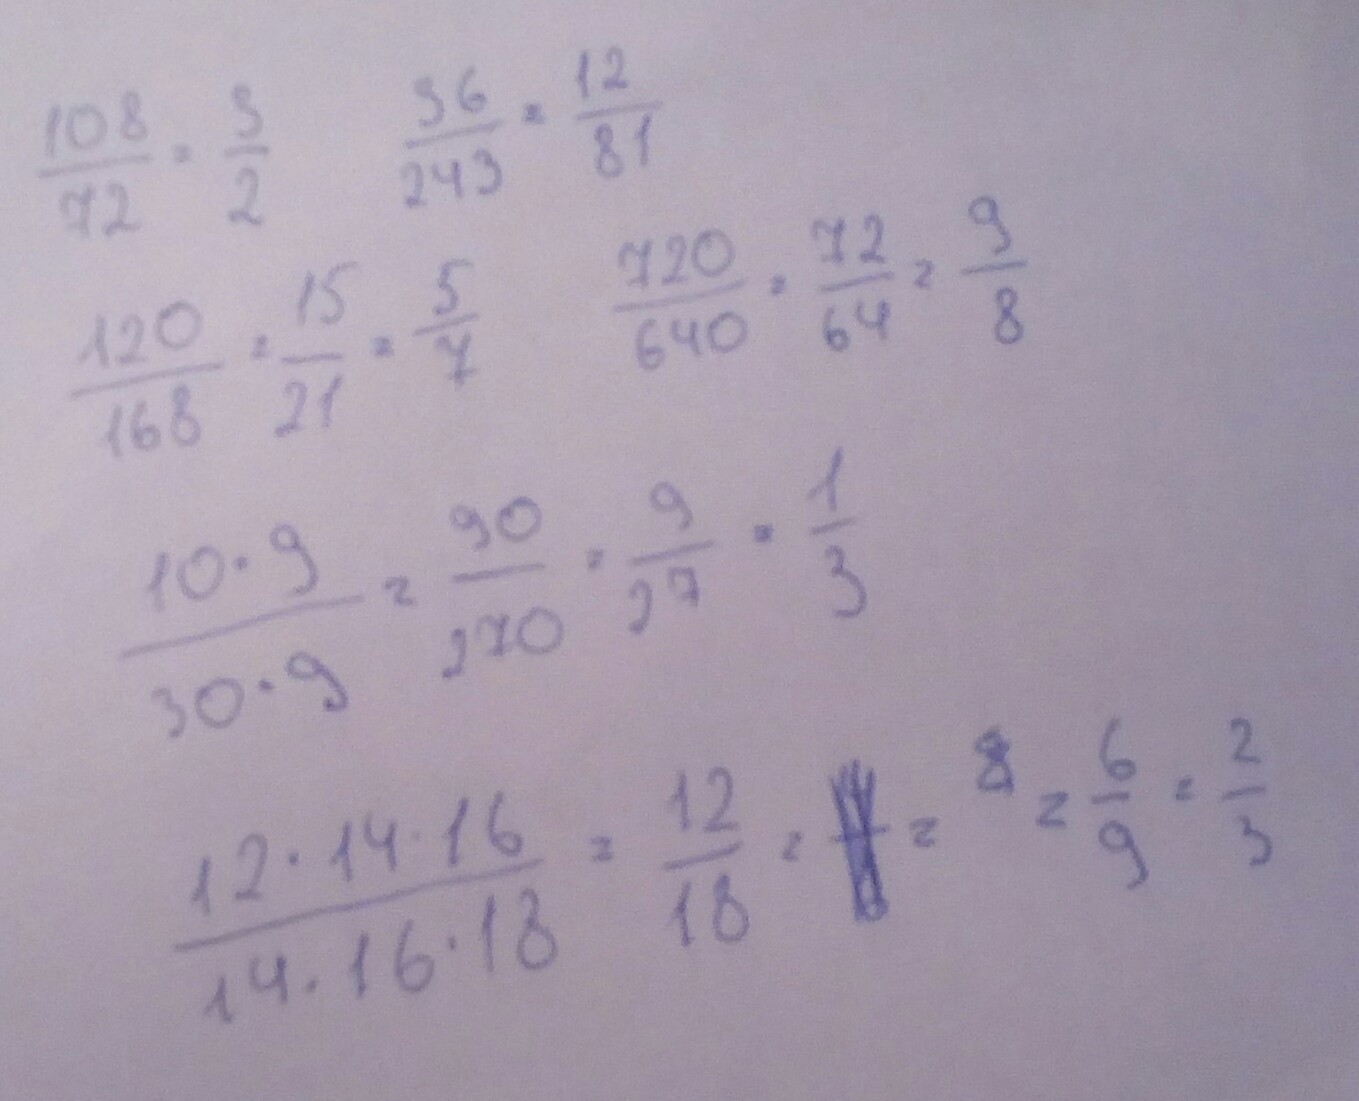 108/72 = 3/2 36/243 = 12/81
120/168 = 15/21 = 5/7 720/640 = 72/64 = 9/8
10·9/30·9 = 90/270 = 9/27 = 1/3
12·14·16/14·16·18 = 12/18 = = 8 = 6/9 = 2/3